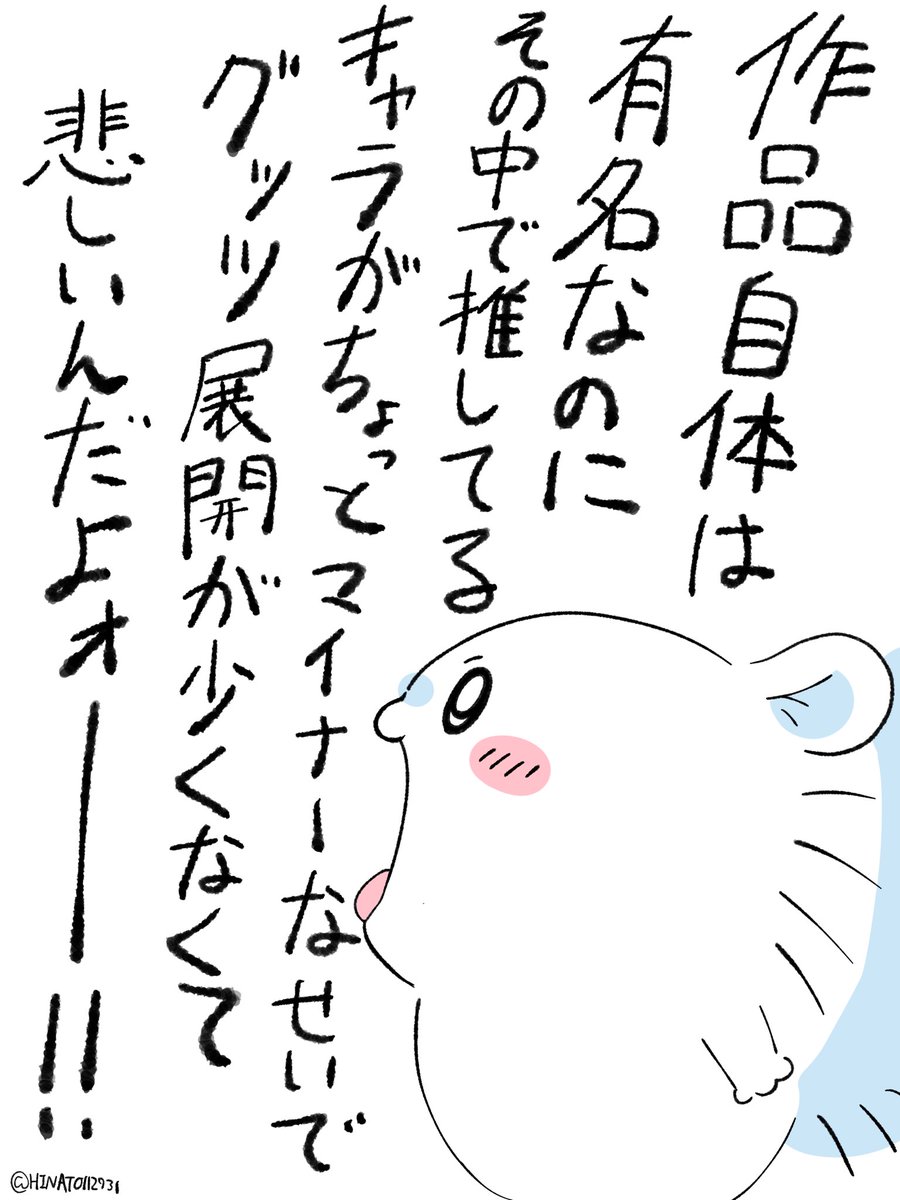 作品自体は
有名なのに
その中で推してる
キャラがちょっとマイナーなせいで
グッツ展開が少くなくて
悲しいんだよォー!!
@HINATO112931